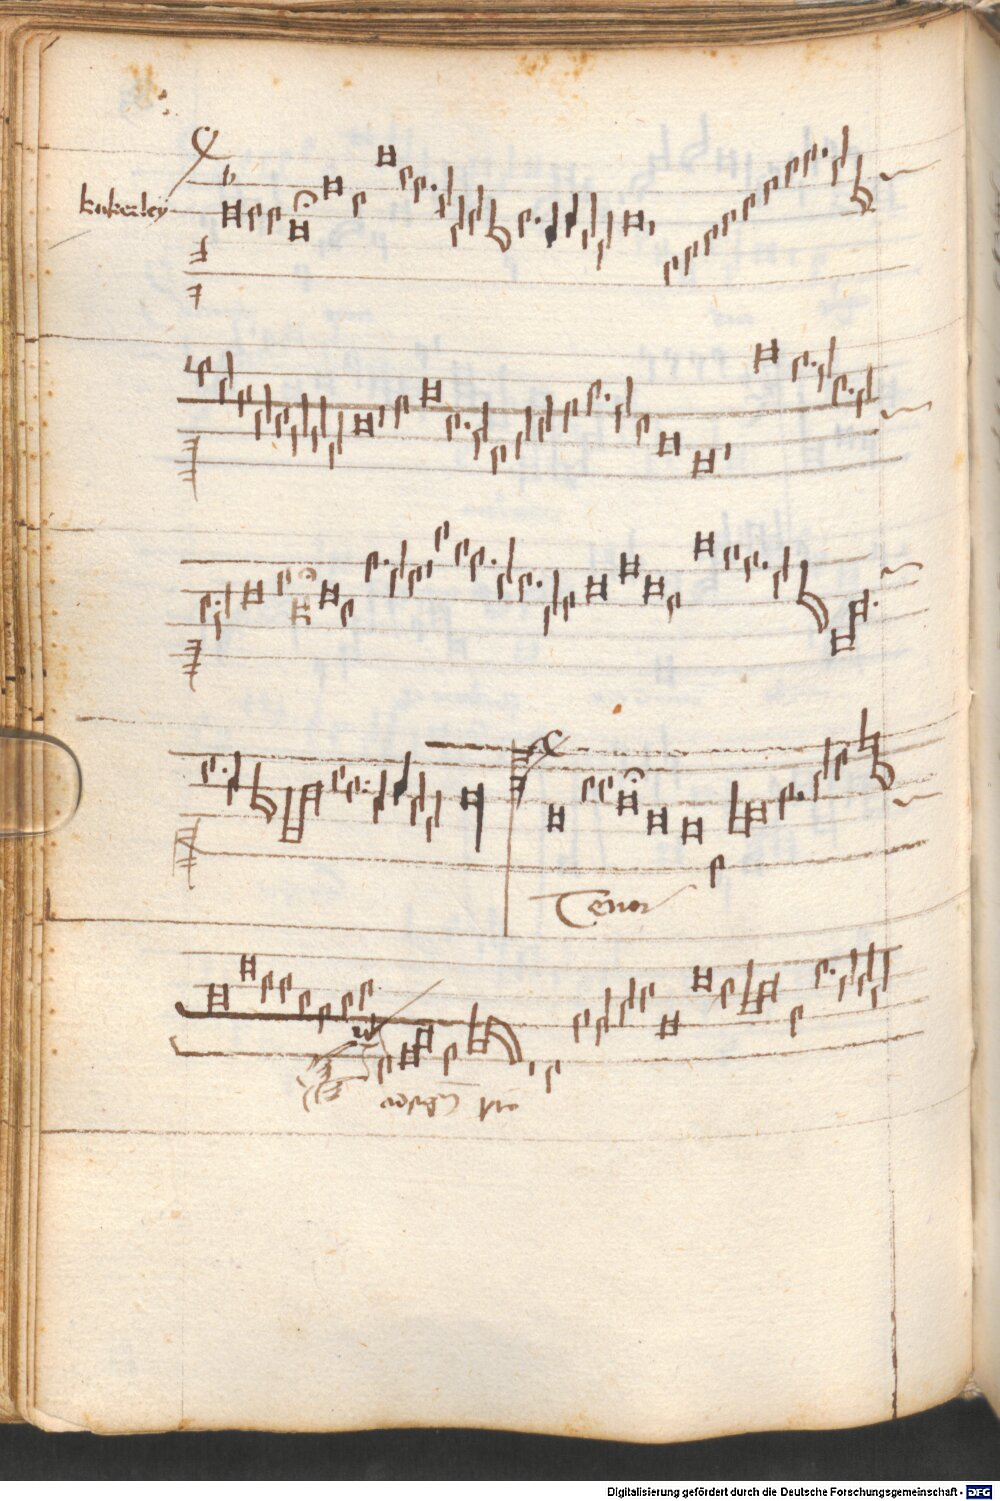 kukerley
Tenor
Digitalisierung gefördert durch die Deutsche Forschungsgemeinschaft - DFG